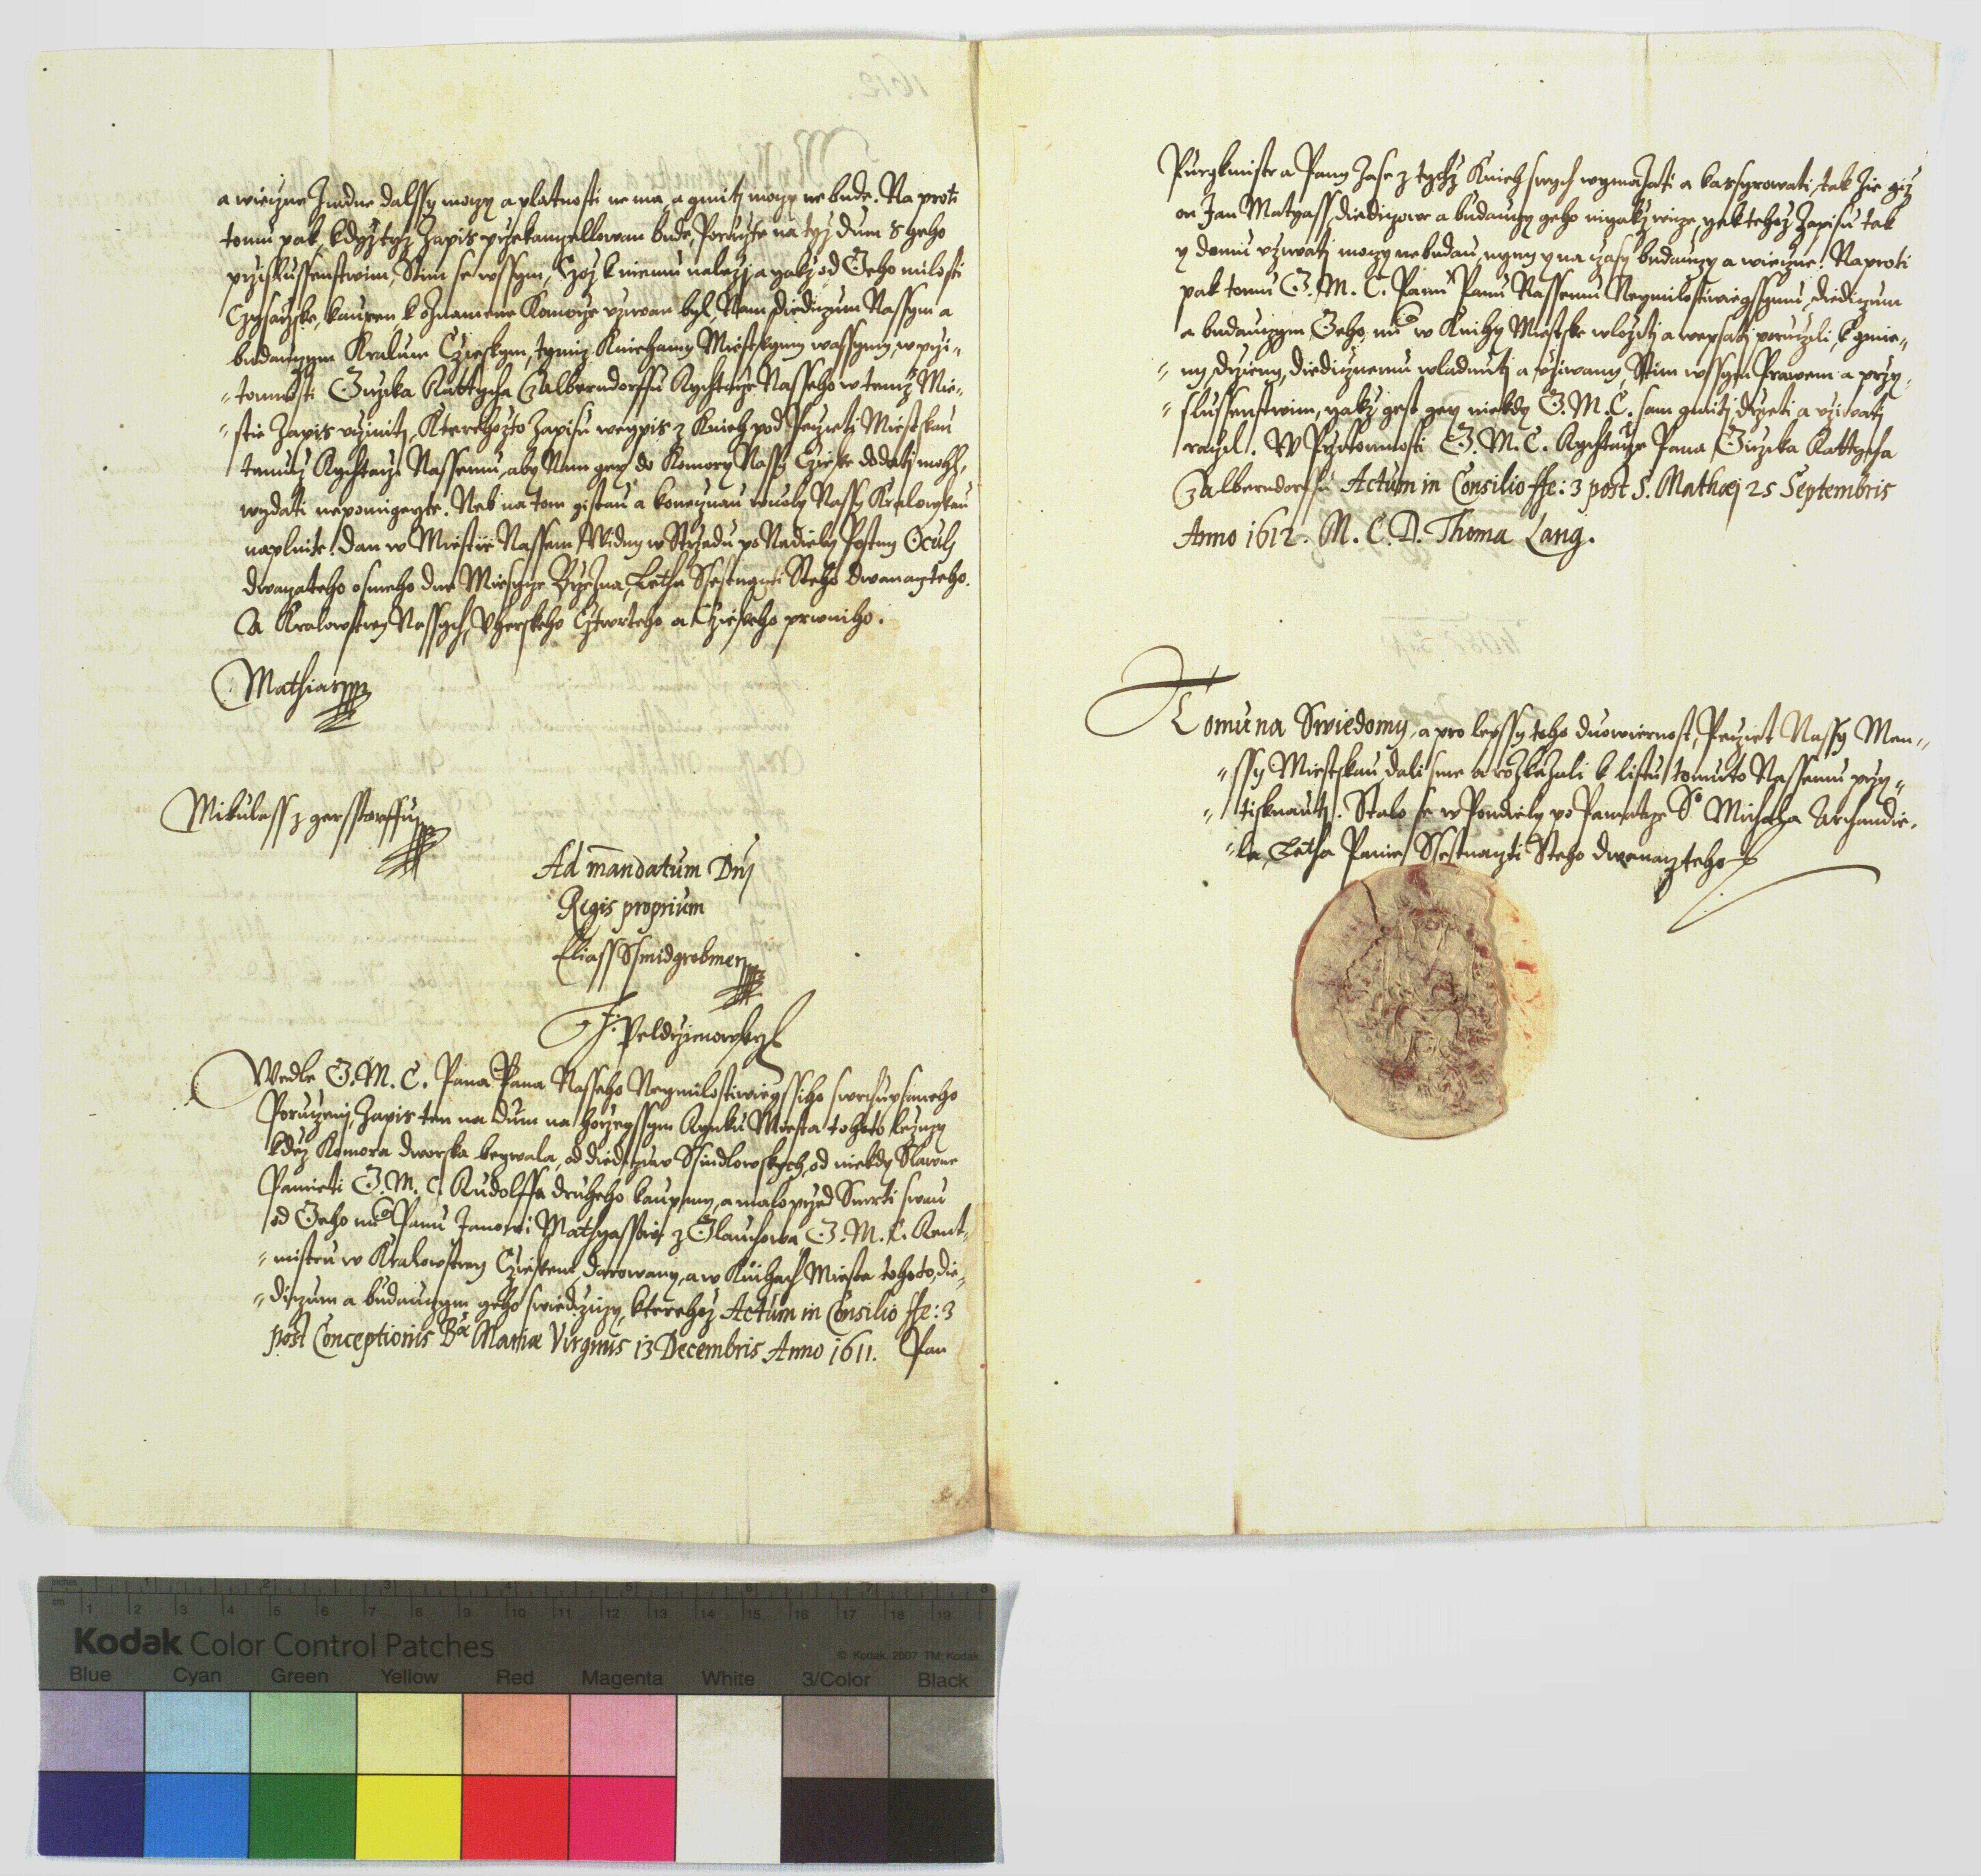 a wieczne žadne dalssy moczy a platnosti nema, a gmiti moczy nebude. Na proti
tomu pak, kdyz tyz Zapis przekanczellowan bude, Porucžte na tyž dum s geho
przislussenstwim, Stim se wssym, Czož k niemu naležj a yakž od Geho milosti
Czysarzske, kaupen k oznamene Komorze vziwan byl, Nam diediczum Nassym a
budauczym Kraluom Czieskym, tymiž Kniehamy Miestskymy wassymy, w przi-
"tomnosti Girzika Kattycha Zalberndorffu Rychtarze Nasseho w temž Mie-
"stie Zapis vcziniti, Kterehožto Zapisu weypis z Knieh pod Peczeti Miestskau
temuž Rychtarzi Nassemu, aby Nam gey do Komory Nassy Czieske dodati mohl,
wydati nepomigeyte. Neb na tom gistau a koneczнau wuoly Nassy Kralowskau
naplnite. Dan w Miestie Nassem Widny w Strzedu po Nedieli Postny Oculi
dwaczateho osmeho dne Miesycze Brzezna, Letha Ssestnczti Steho dwanacteho.
A Kralowstwy Nassych, Vherskeho Cztwrteho a Czieskeho prwniho.
Mathias
Mikulass z gerssdorffu
Ad mandatum Dnj
Regis proprium
Eliass Ssmidgrobmer
Wedle G. M. C. Pana Pana Nasseho Neymilostiwiegssiho swrchupsaneho
Poruczenj, Zapis ten na dum na horzeyssym Rynku Miesta tohoto lezyczy
kdež Komora dworska beywala, od diediczuw Ssindlowskych, od niekdy Slawne
Pamieti G. M. C. Rudolffa druheho kaupeny, a malo przed Smrti swau
od Geho mti Panu Janowi Mathyassowi z Glauchowa G. M. C. Rent-
"mistru w Kralowstwy Czieskem, darowany, a w Knihach Miesta tohoto, die-
"diczum a budauczym geho swiedczyczy, kterehož Actum in Consilio ffe: 3
post Conceptionis Bæ Mariæ Virginis 13 Decembris Anno 1611. Pan
Purgkmistr a Pany Zase z tychž Knieh swych wymazati a kassyrowati, tak žie giž
on Jan Matyass, diediczowe a budauczy geho nigakž wicze, yak tehož Zapisu tak
y domu vziwati moczy nebudau, nyny y na czasy budauczy a wieczne. Na proti
pak tomu G. M. C. Panu Panu Nassemu Neymilostiwiegssymu, diediczum
a budauczym Geho mti w Knihy Miestske wložiti a wepsati poruczili, k gmie-
"ny, drzieny, diedicznemu wladnuti a vžiwany, Stim wssym Prawem a przy-
"slussenstwim, yakž gest gey niekdy G. M. C. sam gmiti, drzeti a vžiwati
raczil. W Przitomnosti G. M. C. Rychtarze Pana Girzika Kattycha
Zalberndorffu Actum in Consilio ffe: 3 post S. Mathæi 25 Septembris
Anno 1612. M. C. D. Thoma Lang.
Tomu na Swiedomy, a pro lepssy toho duowiernost, Peczet Nassy Men-
"ssy Miestskau dali sme a rozkazali k listu tomuto Nassemu przy-
"tisknauti. Stalo se w Pondiely po Pamatcze So Michala Archandie-
"la, Letha Panie Ssestnaczti Steho dwanacteho
Kodak Color Control Patches
© Kodak, 2007 TM: Kodak
Blue Cyan Green Yellow Red Magenta White 3/Color Black